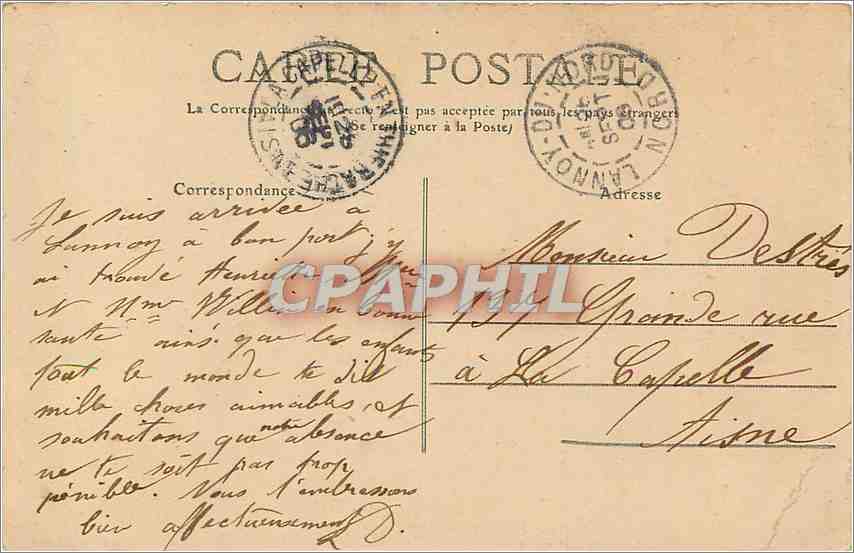 CARTE POSTALE
La Correspondance au recto n'est pas acceptée par tous les pays étrangers
(Se renseigner à la Poste)
LA CAPELLE-EN-THIERACHE AISNE
LANNOY-DU-NORD NORD
SEPT
09
Correspondance
Adresse
Je suis arrivée a
Lannoy à bon port j'y
ai trouvé
et Willi en bonne
santé ainsi que les enfants
tout le monde te dit
mille choses aimables, et
souhaitons que notre absence
ne te soit pas trop
pénible. Nous t'embrassons
bien affectueusement D.
Monsieur Destrés
Grande rue
à La Capelle
Aisne
CPAPHIL